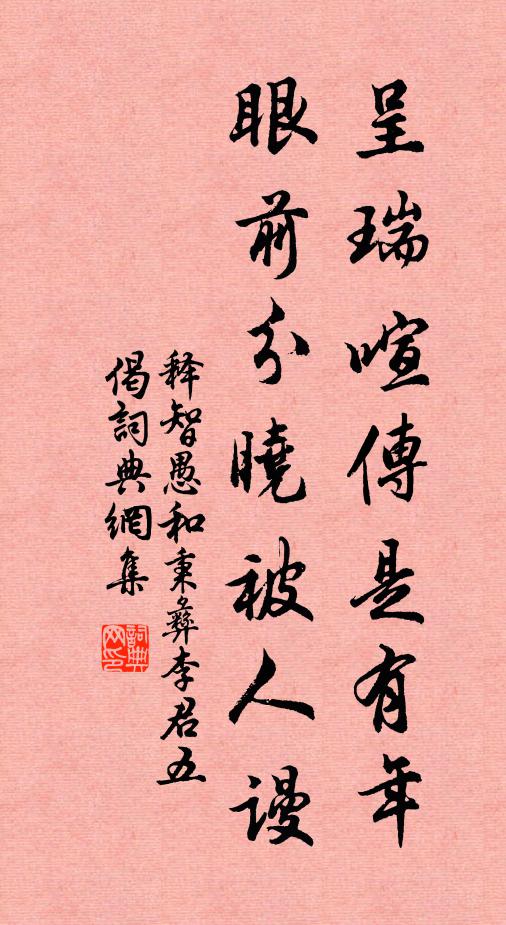 呈瑞喧傳是有年
眼前分曉被人謾
释智愚和秉彝李君五
偈詞典網集
詞典网印